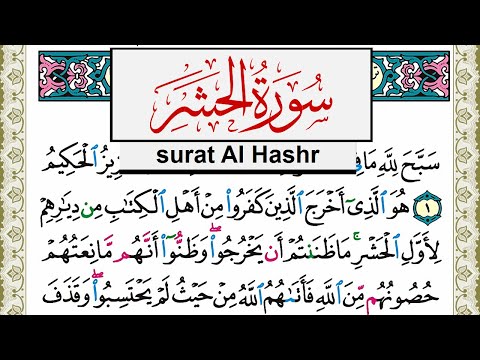 سُورَةُ الحَشْرِ
surat Al Hashr
سَبَّحَ لِلَّهِ مَا فِي ٱلْحَكِيمُ
١ هُوَ ٱلَّذِىٓ أَخْرَجَ ٱلَّذِينَ كَفَرُوا۟ مِنْ أَهْلِ ٱلْكِتَٰبِ مِن دِيَٰرِهِمْ
لِأَوَّلِ ٱلْحَشْرِ ۚ مَا ظَنَنتُمْ أَن يَخْرُجُوا۟ ۖ وَظَنُّوٓا۟ أَنَّهُم مَّانِعَتُهُمْ
حُصُونُهُم مِّنَ ٱللَّهِ فَأَتَىٰهُمُ ٱللَّهُ مِنْ حَيْثُ لَمْ يَحْتَسِبُوا۟ ۖ وَقَذَفَ